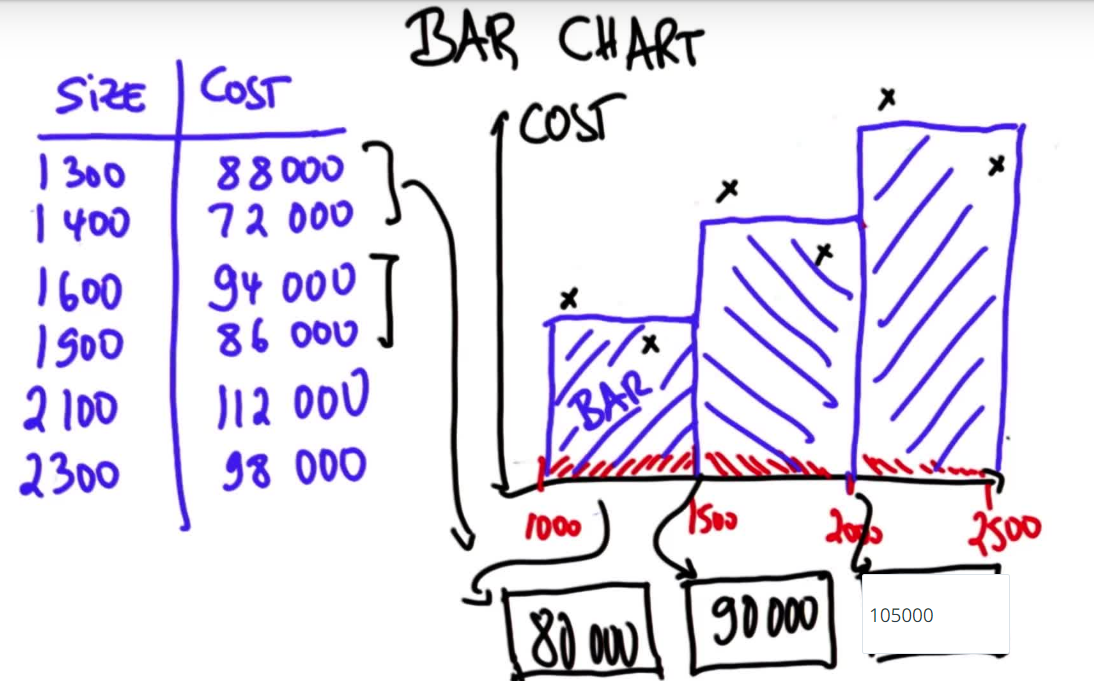 BAR CHART
SiZE COST
1300 88000
1400 72 000
1600 94 000
1900 86 000
2100 112 000
2300 98 000
COST
BAR
1000 1500 2000 2500
80 000 90 000 105000